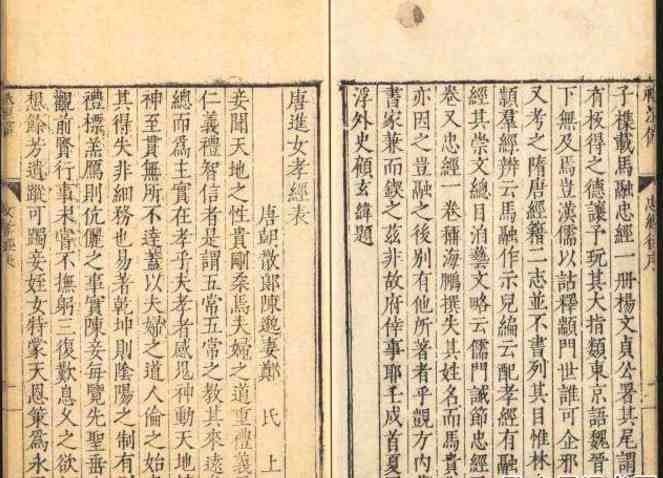 子載馬融忠經一冊楊文貞公署其尾謂
有得之德讓予玩其大指類東京語魏晉
下無及馬豈漢儒以詁釋顓門世誰可企邪
又考之隋唐經籍二志並不書列其目惟林
羣經辨云馬融作示兒編云配孝經有融
經其崇文總目藝文略云儒門誡節忠經
卷又忠經一卷稱海鵬撰失其姓名而馬貴
亦因之豈融之後別有他所著者乎觀方內
書家兼而鍥之茲非故府倖事耶壬戌首夏
浮外史顧玄緯題
唐進女孝經表
唐朝散郎陳邈妻鄭氏上
妾聞天地之性貴剛柔焉夫婦之道重禮義
仁義禮智信者是謂五常五常之教其來遠
總而為主實在孝乎夫孝者感鬼神動天地
神至貫無所不達蓋以夫婦之道人倫之始
其得失非細務也易著乾坤則陰陽之制有
禮標羔鴈則伉儷之事實陳妾每覽先聖垂
觀前賢行事未嘗不撫躬三復歎息久之欲
想餘芳遺蹤可躅妾姪女特蒙天恩策為永